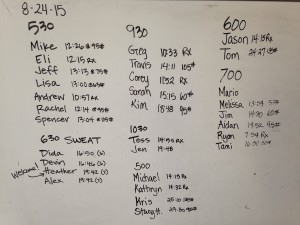 8-24-15
530
Mike 12:26 @ 95#
Eli 12:15 RX
Jeff 13:13 @ 75#
Lisa 13:00 @65#
Andrew 10:57 RX
Rachel 12:14 @ 55#
Spencer 13:04 @ 75#
630 SWEAT
Dida 16:50 (5)
Devin 16:46 (6)
Welcome! Heather 19:42 (7)
Alex 19:42 (7)
930
Greg 10:33 RX
Travis 14:11 105#
Corey 11:52 RX
Sarah 15:15 60#
Kim 18:48 95#
1030
Tess 14:50 RX
Jen 19:48
500
Michael 14:15 RX
Kathryn 14:32 RX
Kris 25:10
Stacy H. 29:30
600
Jason 14:15 RX
Tom 24:27
700
Mario
Melissa 13:04
Jim 14:20 60#
Aidan 14:52 45#
Ryan 7:54 RX
Tami